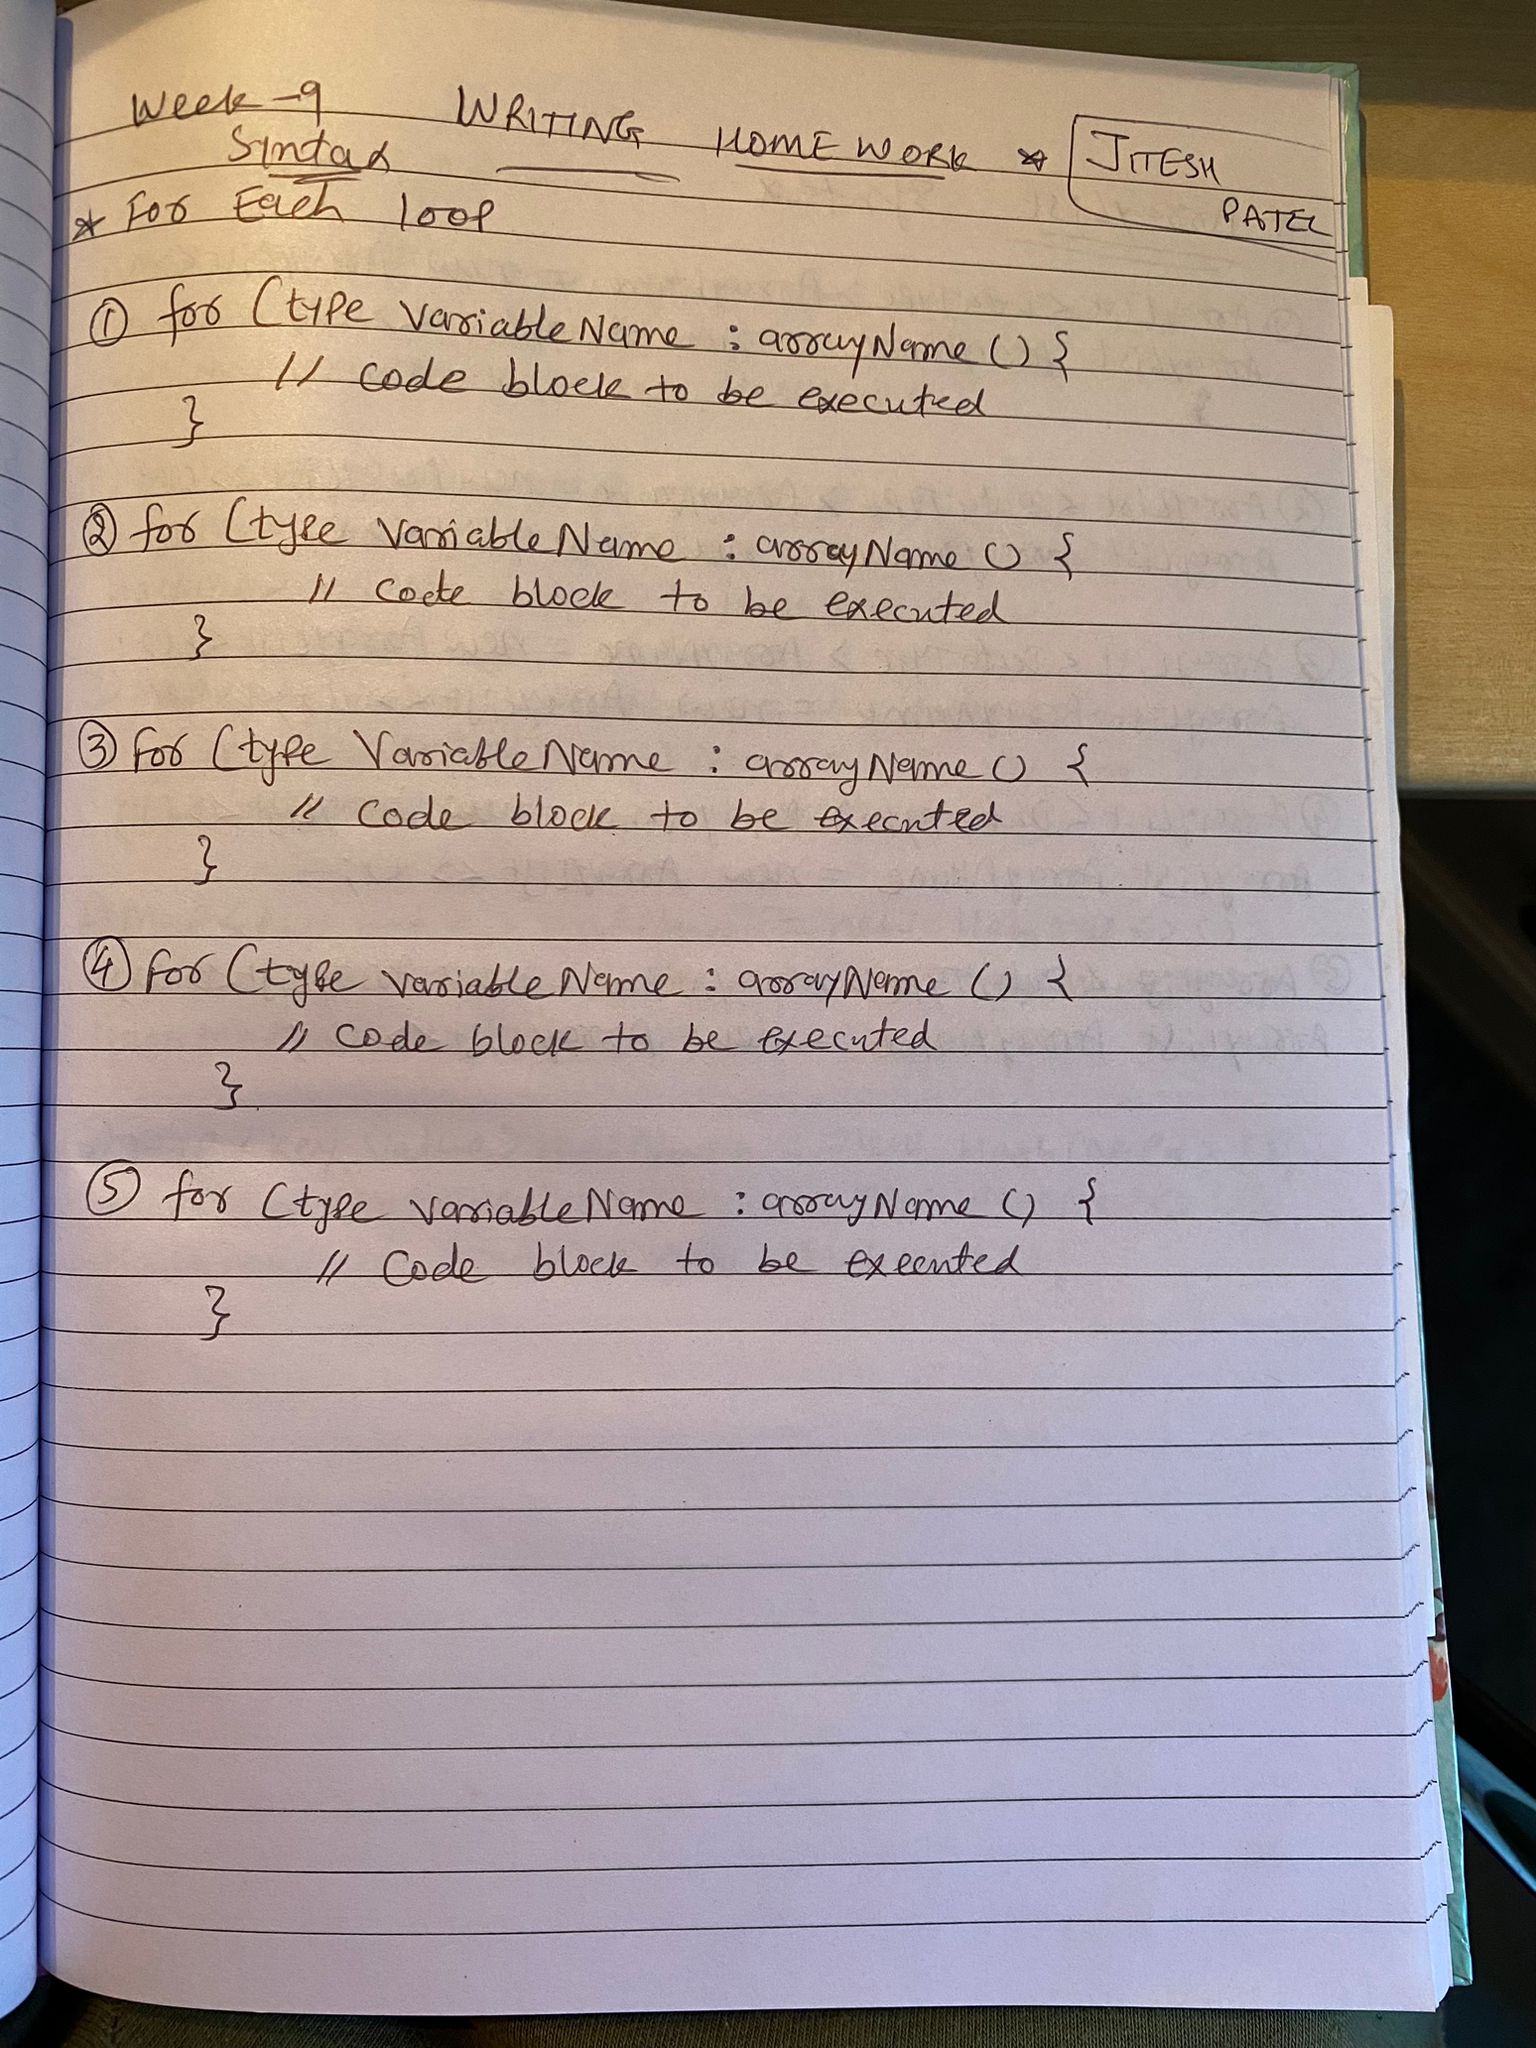 Week-9 WRITING HOME WORK * JITESH PATEL
Syntax
* For Each loop
① for (type variableName : arrayName () {
// code block to be executed
}
② for (type variableName : arrayName () {
// code block to be executed
}
③ for (type VariableName : arrayName () {
// code block to be executed
}
④ for (type variableName : arrayName () {
// code block to be executed
}
⑤ for (type variableName : arrayName () {
// Code block to be executed
}